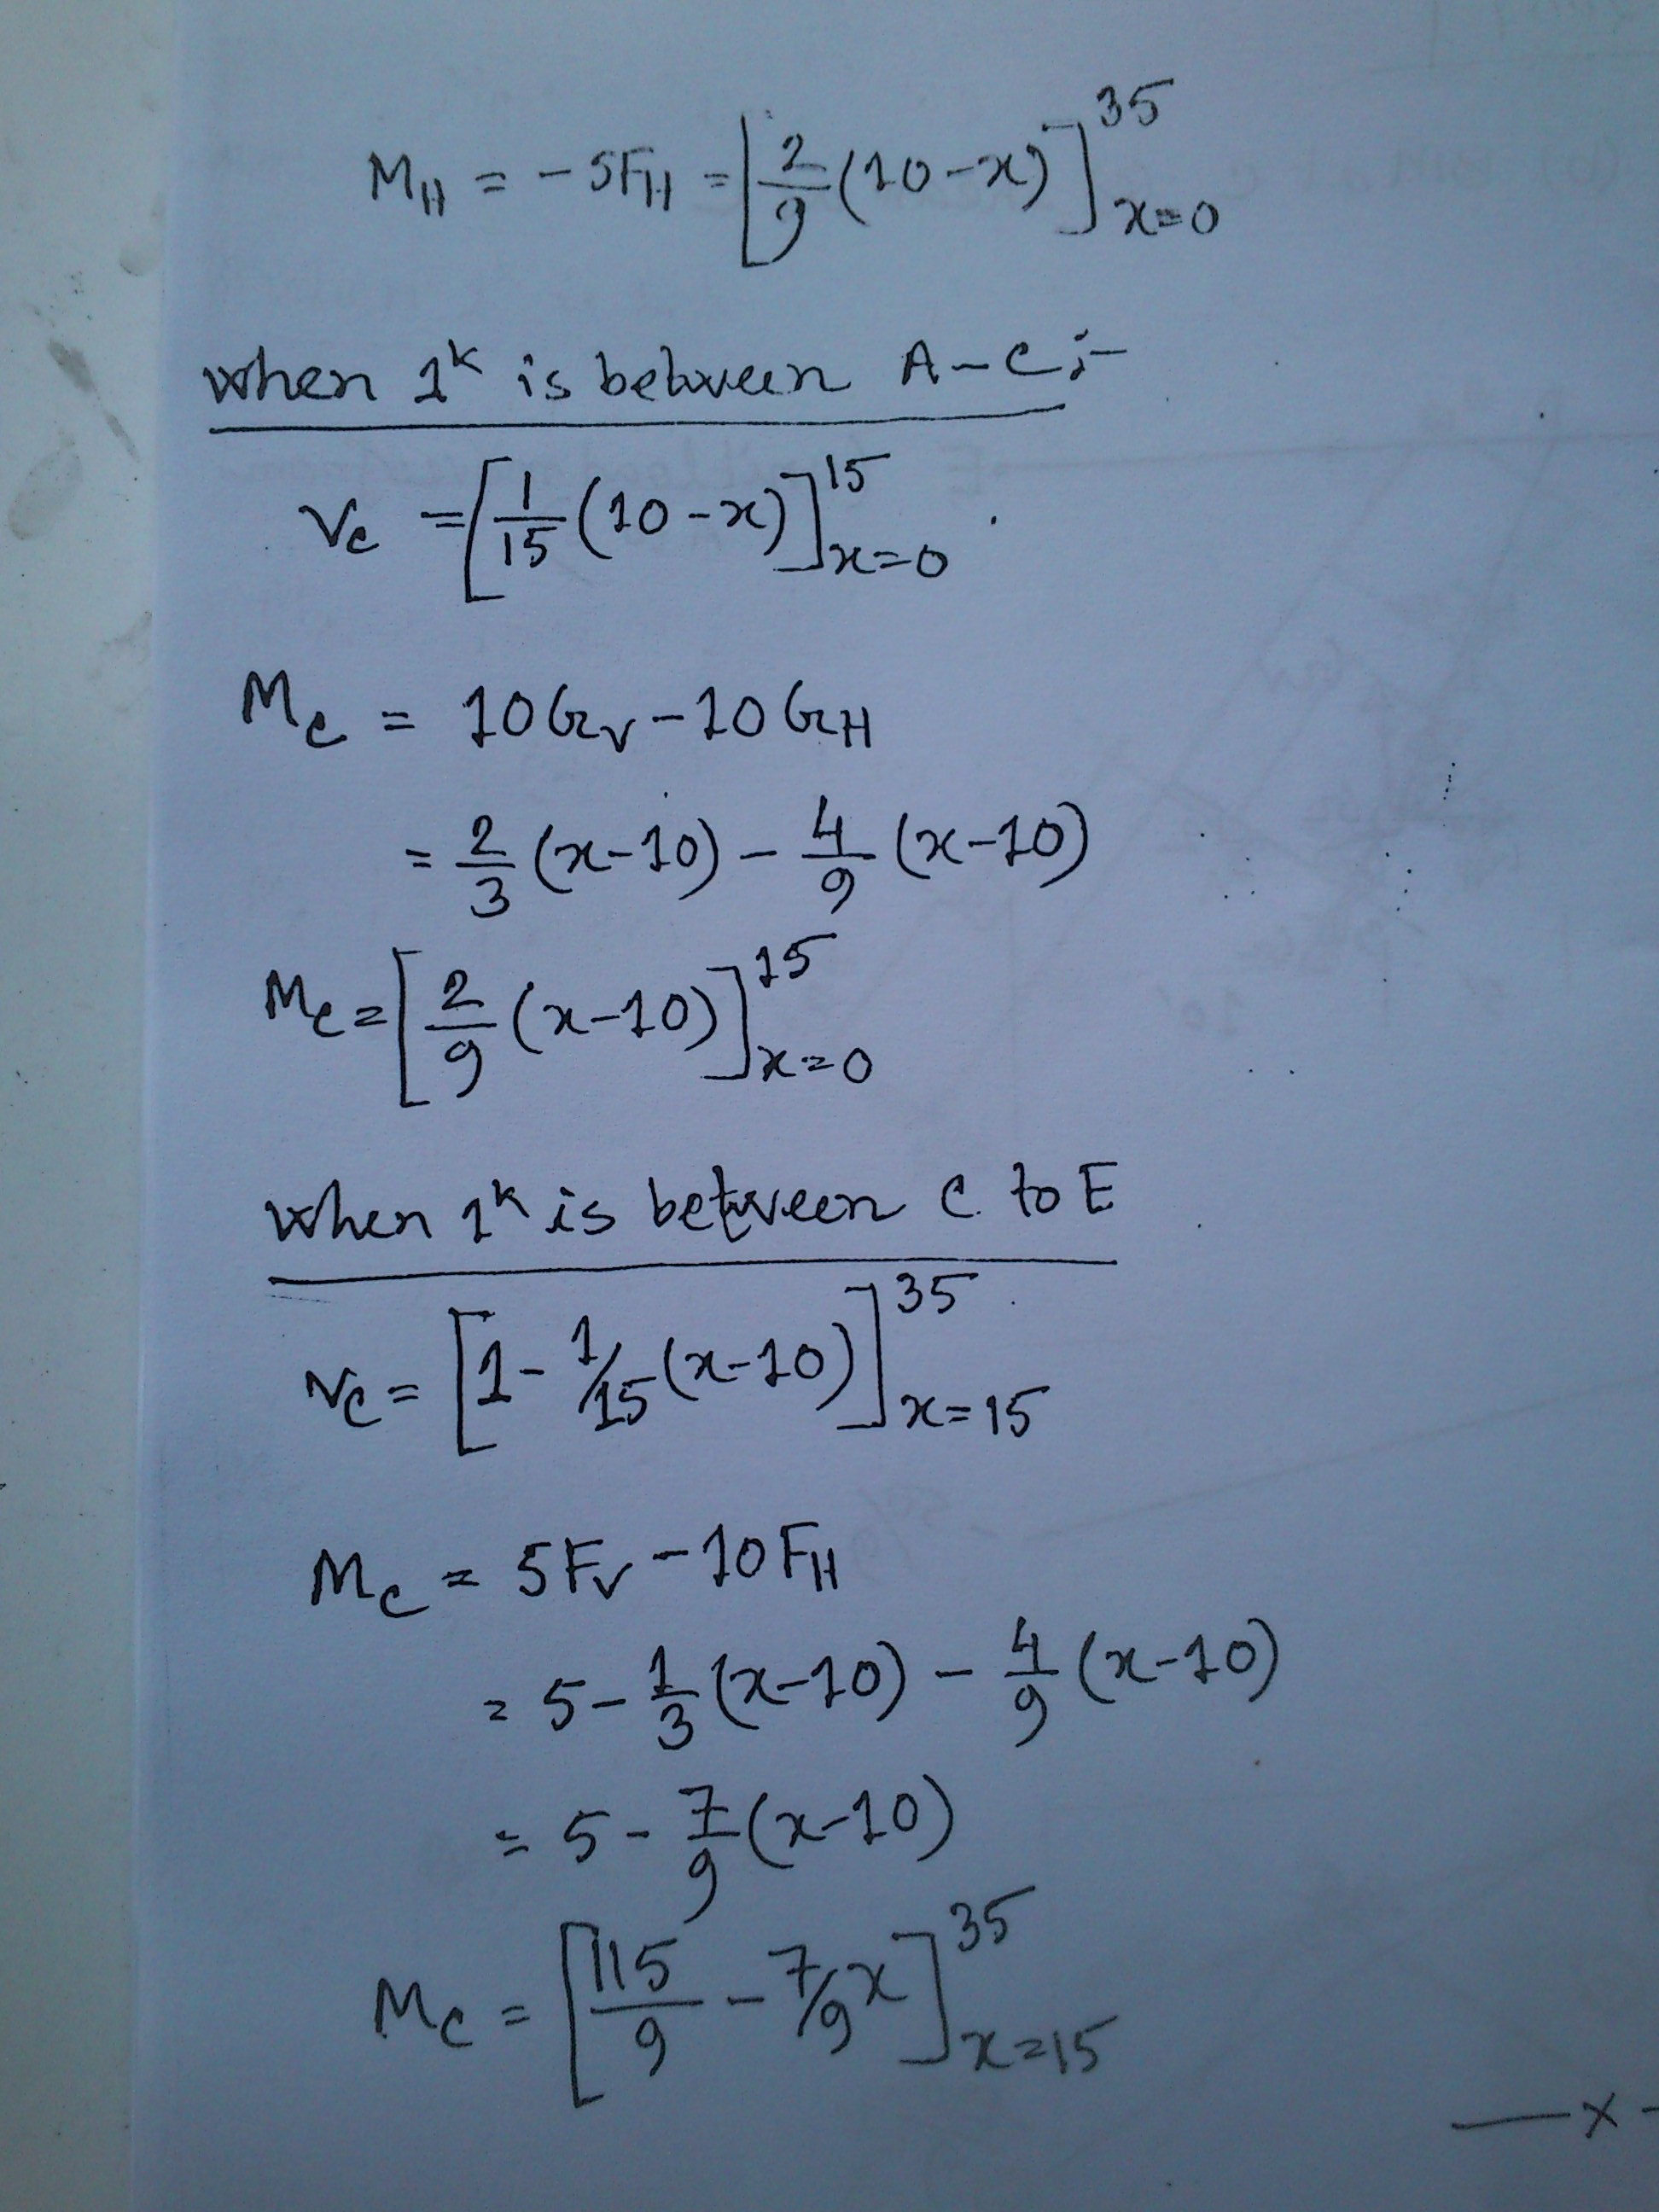 M_H = -5F_H = [2/9 (10-x)]^35_x=0
when 1^k is between A-C;-
V_C = [1/15 (10-x)]^15_x=0
M_C = 10G_V - 10G_H
= 2/3 (x-10) - 4/9 (x-10)
M_C = [2/9 (x-10)]^15_x=0
when 1^k is between C to E
V_C = [1 - 1/15 (x-10)]^35_x=15
M_C = 5F_V - 10F_H
= 5 - 1/3 (x-10) - 4/9 (x-10)
= 5 - 7/9 (x-10)
M_C = [115/9 - 7/9 x]^35_x=15
—x-